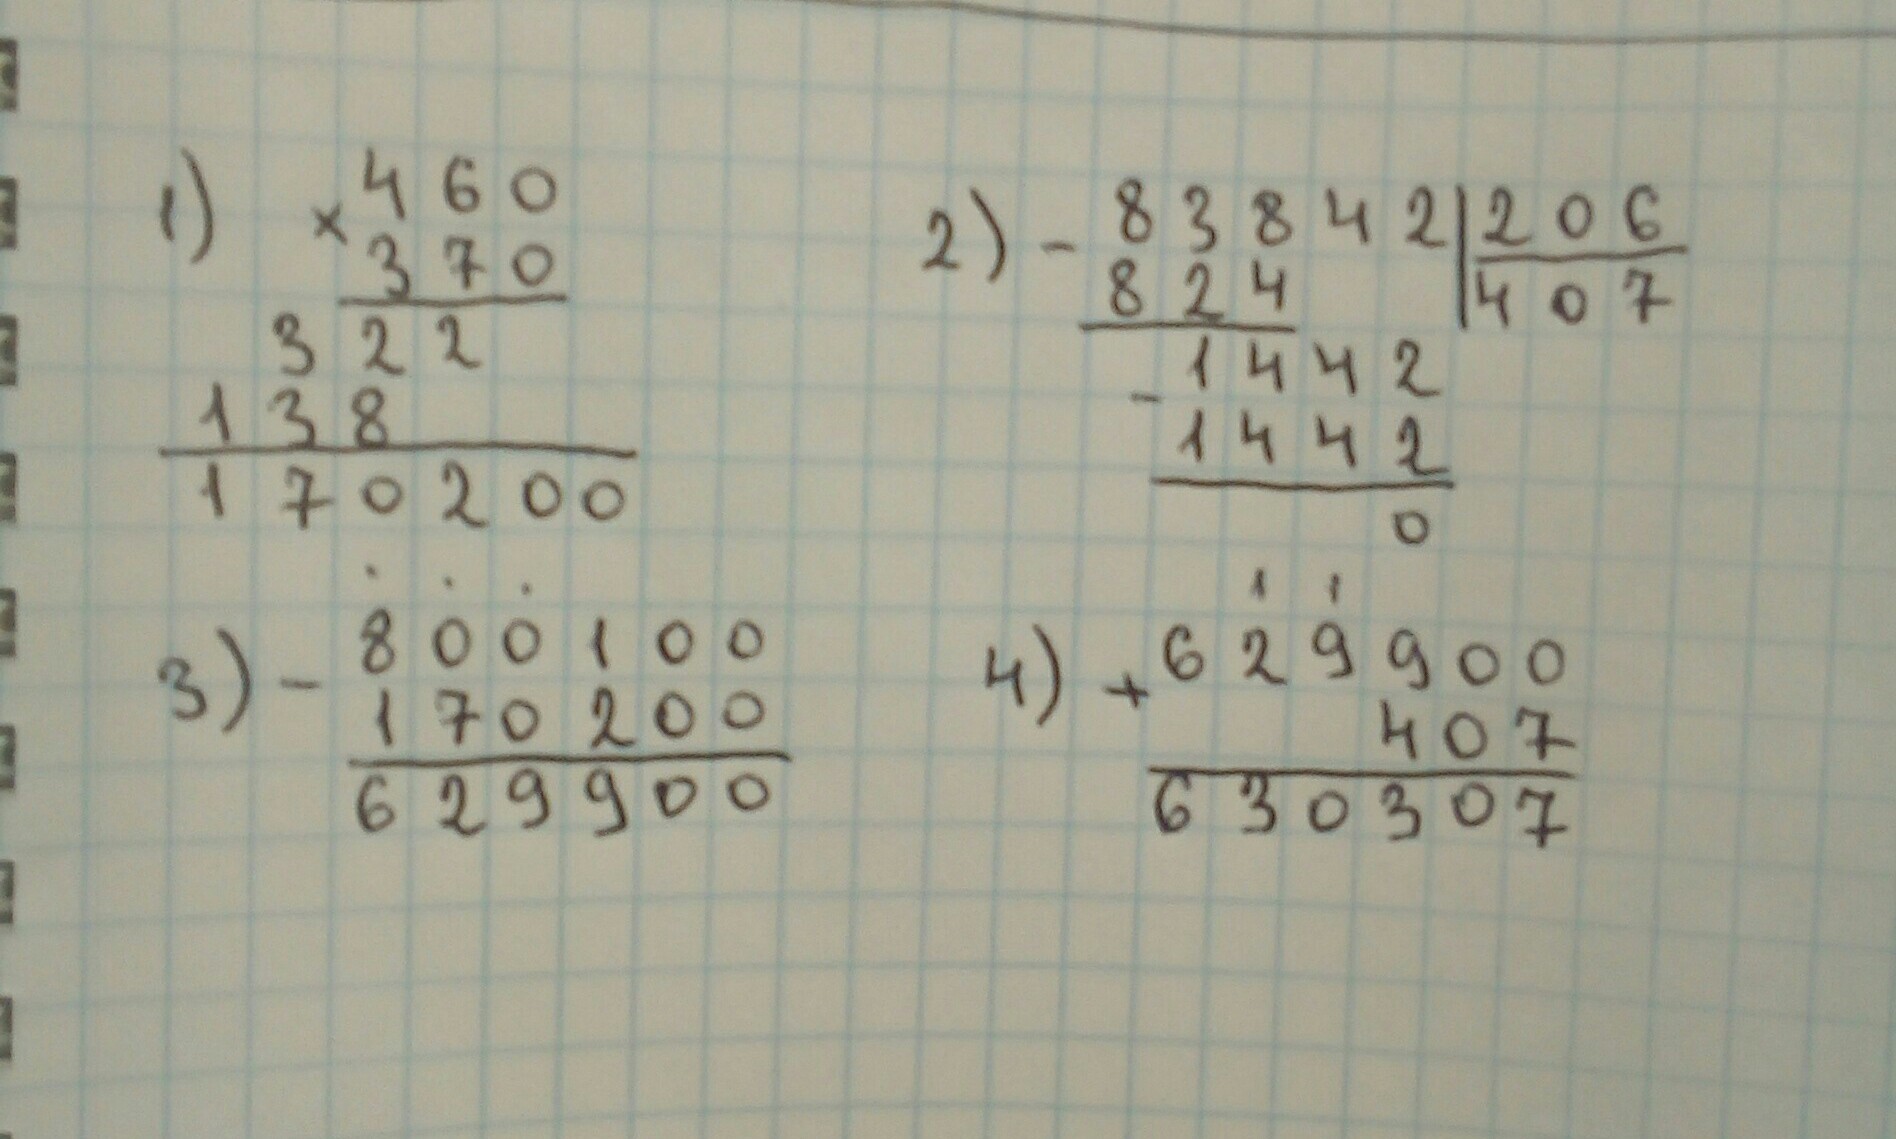 1) × 460
370
322
138
170200
2) - 83842 | 206
824 | 407
- 1442
1442
0
3) - 800100
170200
629900
1 1
4) + 629900
407
630307